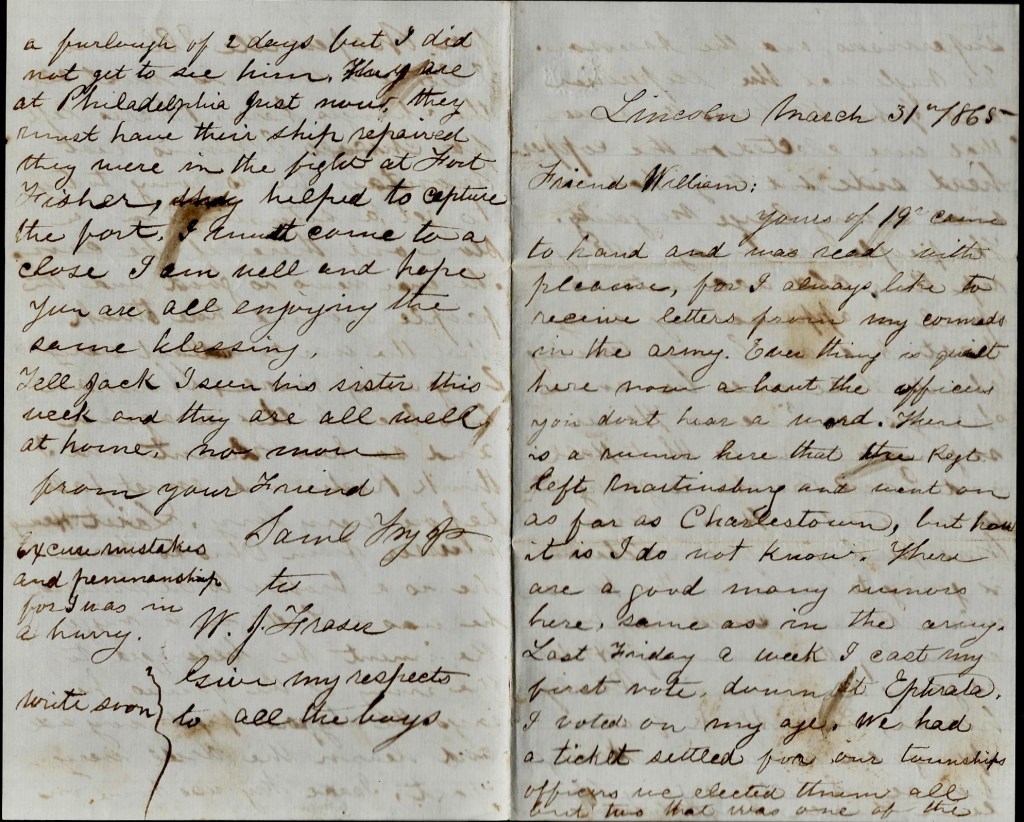 Lincoln March 31st/1865
Friend William;
yours of 19th came
to hand and was read with
pleasure, for I always like to
receive letters from my comrads
in the army. Evry thing is quiet
here now a bout the officers
you dont hear a word. There
is a rumor here that the Regt
left Martinsburg and went on
as far as Charlestown, but how
it is I do not know. There
are a good many rumors
here, same as in the army.
Last Friday a week I cast my
first vote, down at Ephrata.
I voted on my age. We had
a ticket settled for our townships
officers we elected them all
but two that was one of the
a furlough of 2 days but I did
not get to see him. They are
at Philadelphia Just now, they
must have their ship repaired
they were in the fight at Fort
Fisher, they helped to capture
the fort. I must come to a
close I am well and hope
you are all enjoying the
same blessing.
Tell Jack I seen his sister this
week and they are all well
at home. no more
from your Friend
Saml Fry Jr
to
W. J. Fraser
Excuse mistakes
and penmanship
for I was in
a hurry.
write soon
Give my respects
to all the boys